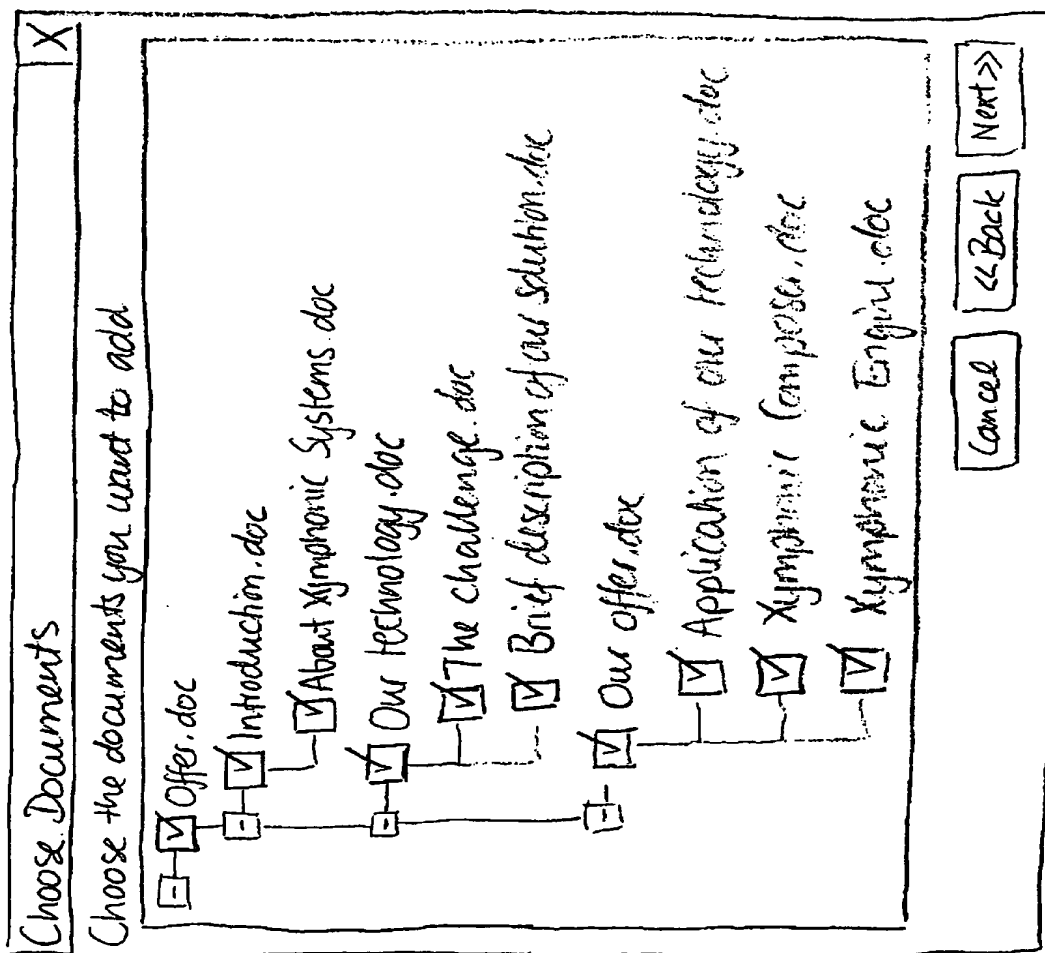 Choose Documents X
Choose the documents you want to add
Offer.doc
Introduction.doc
About Xymphonic Systems.doc
Our technology.doc
The challenge.doc
Brief description of our solution.doc
Our offer.doc
Application of our technology.doc
Xymphonic Composer.doc
Xymphonic Engine.doc
Cancel <<Back Next>>